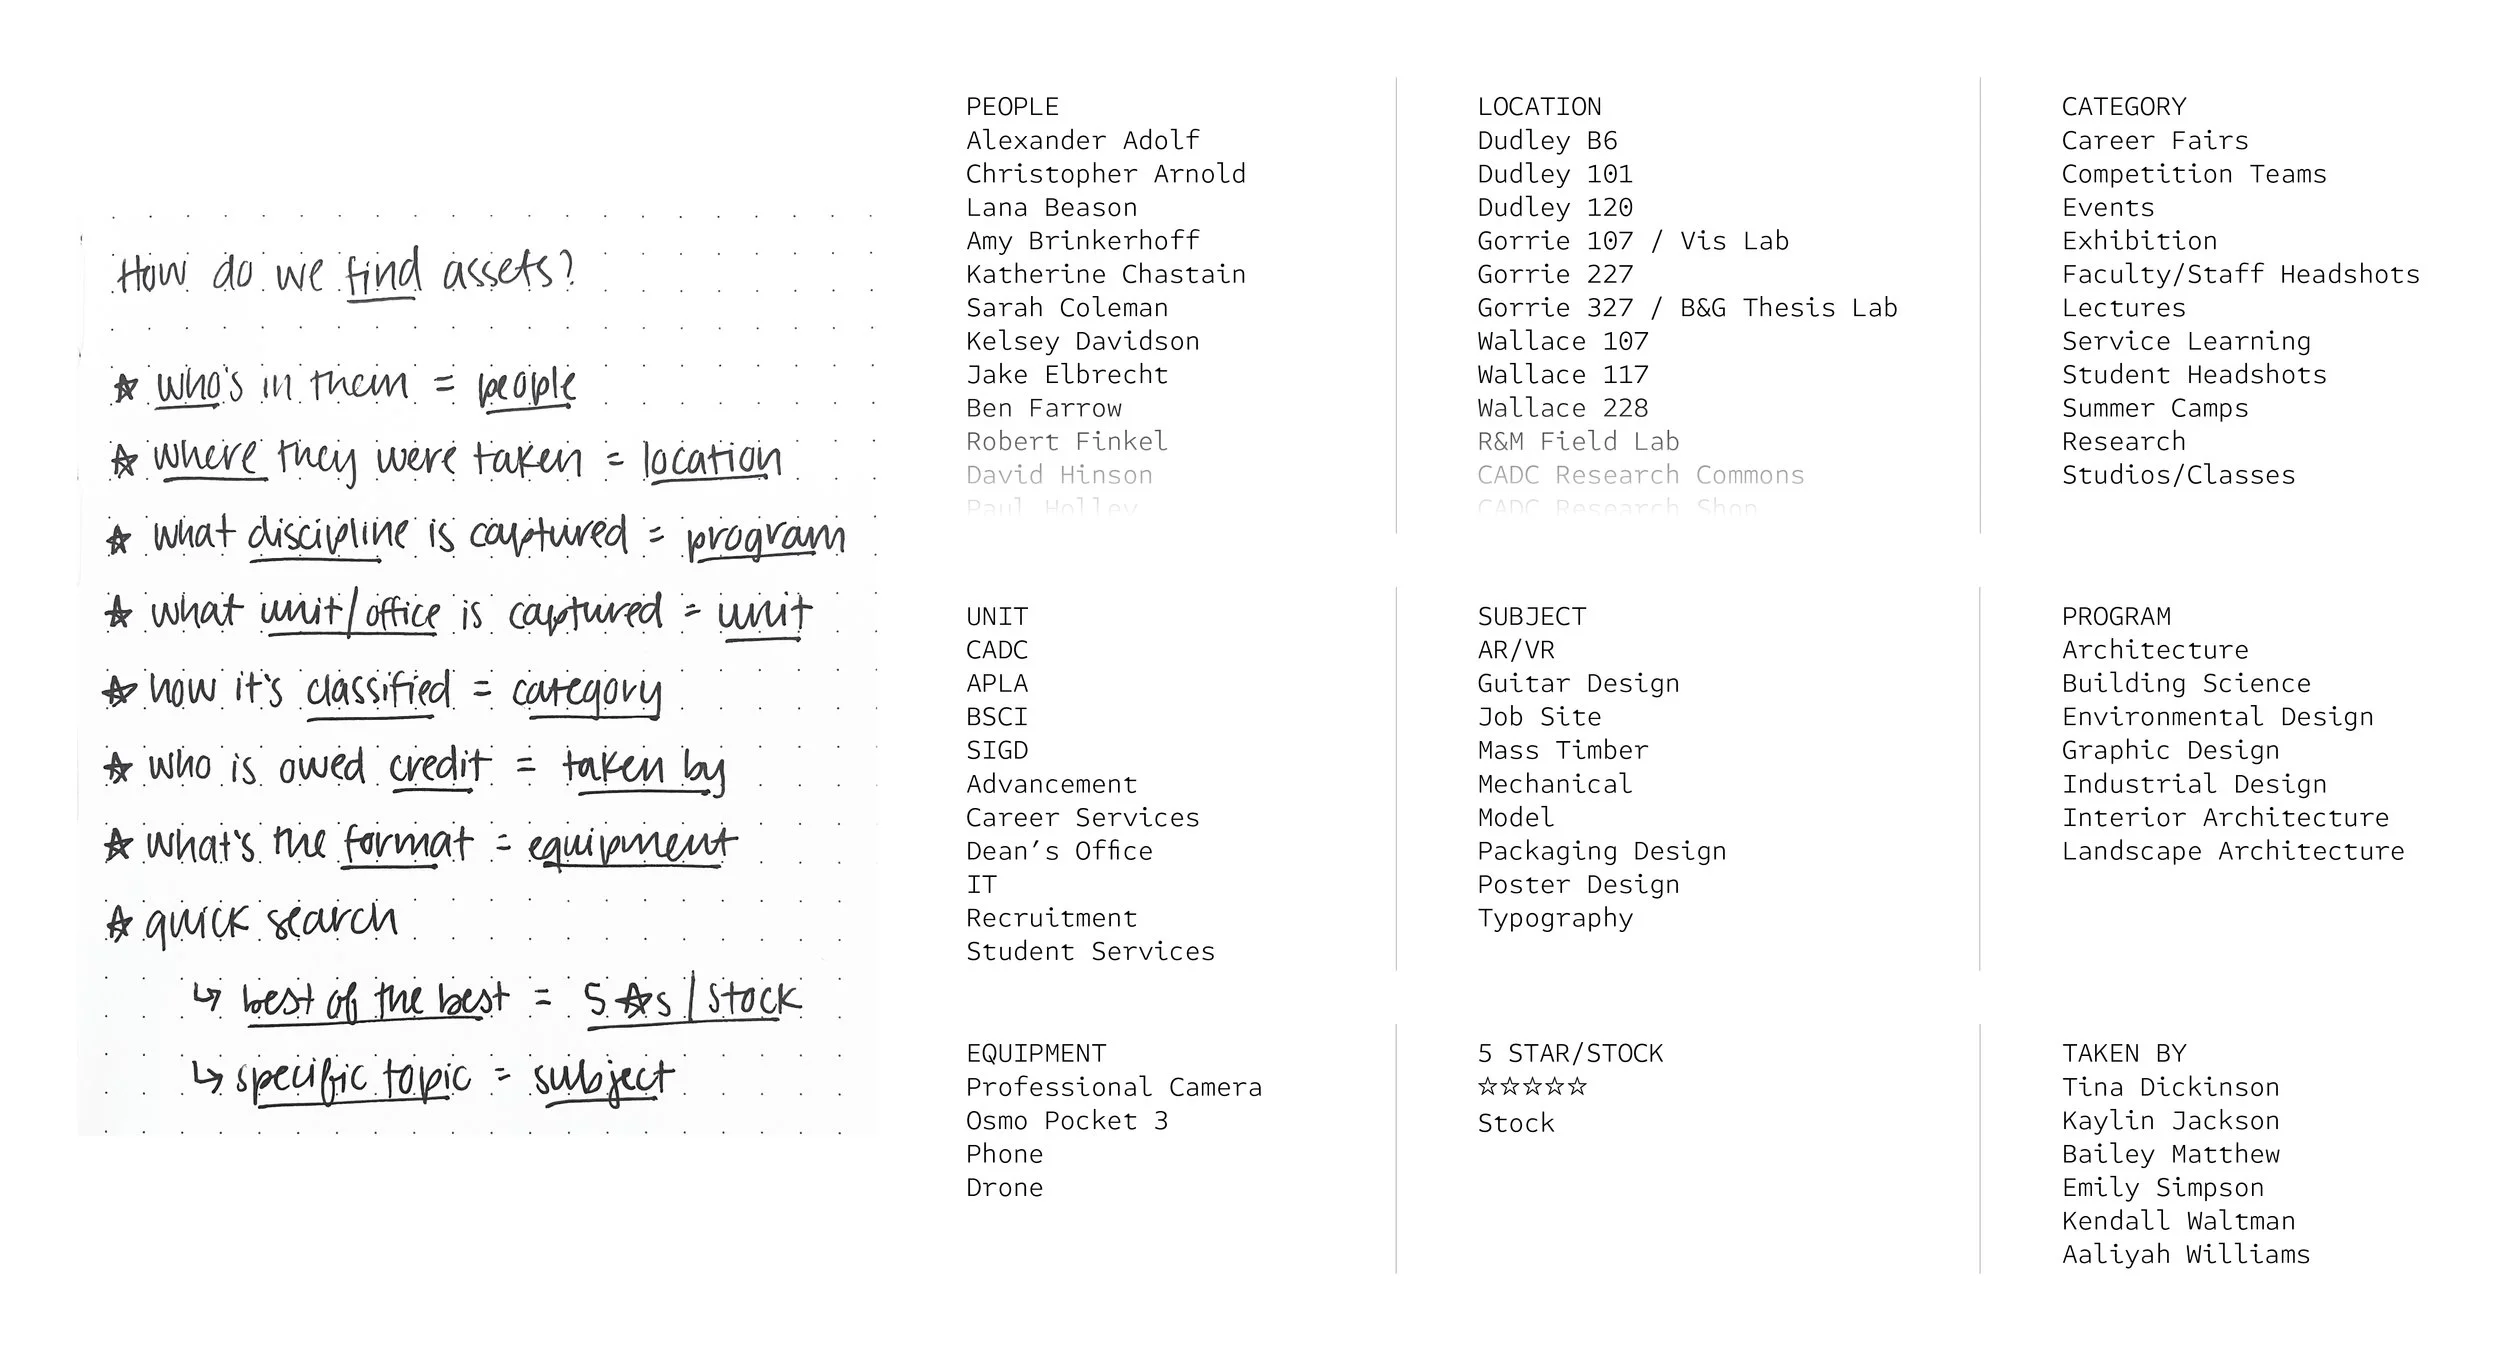 How do we find assets?
☆ who's in them = people
☆ where they were taken = location
☆ what discipline is captured = program
☆ what unit/office is captured = unit
☆ how it's classified = category
☆ who is owed credit = taken by
☆ what's the format = equipment
☆ quick search
↳ best of the best = 5 ☆s / stock
↳ specific topic = subject
PEOPLE
Alexander Adolf
Christopher Arnold
Lana Beason
Amy Brinkerhoff
Katherine Chastain
Sarah Coleman
Kelsey Davidson
Jake Elbrecht
Ben Farrow
Robert Finkel
David Hinson
Paul Holley
LOCATION
Dudley B6
Dudley 101
Dudley 120
Gorrie 107 / Vis Lab
Gorrie 227
Gorrie 327 / B&G Thesis Lab
Wallace 107
Wallace 117
Wallace 228
R&M Field Lab
CADC Research Commons
CADC Research Shop
CATEGORY
Career Fairs
Competition Teams
Events
Exhibition
Faculty/Staff Headshots
Lectures
Service Learning
Student Headshots
Summer Camps
Research
Studios/Classes
UNIT
CADC
APLA
BSCI
SIGD
Advancement
Career Services
Dean’s Office
IT
Recruitment
Student Services
SUBJECT
AR/VR
Guitar Design
Job Site
Mass Timber
Mechanical
Model
Packaging Design
Poster Design
Typography
PROGRAM
Architecture
Building Science
Environmental Design
Graphic Design
Industrial Design
Interior Architecture
Landscape Architecture
EQUIPMENT
Professional Camera
Osmo Pocket 3
Phone
Drone
5 STAR/STOCK
☆☆☆☆☆
Stock
TAKEN BY
Tina Dickinson
Kaylin Jackson
Bailey Matthew
Emily Simpson
Kendall Waltman
Aaliyah Williams